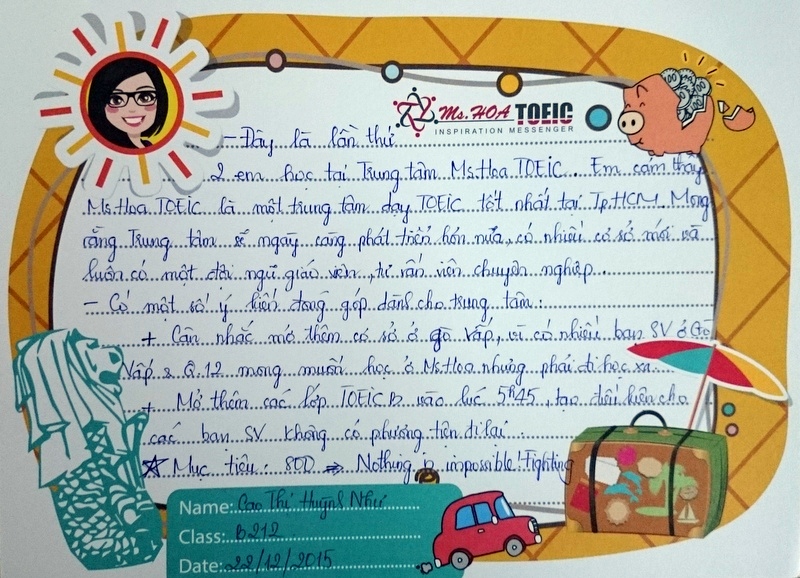 Ms. HOA TOEIC
INSPIRATION MESSENGER
- Đây là lần thứ
2 em học tại Trung tâm Ms Hoa TOEIC... Em cảm thấy
Ms Hoa TOEIC là một trung tâm dạy TOEIC tốt nhất tại Tp.HCM. Mong
rằng Trung tâm sẽ ngày càng phát triển hơn nữa, có nhiều cơ sở mới và
luôn có một đội ngũ giáo viên, tư vấn viên chuyên nghiệp...
- Có một số ý kiến đóng góp dành cho trung tâm:
+ Cân nhắc mở thêm cơ sở ở gò vấp, vì có nhiều bạn SV ở Gò
Vấp & Q.12 mong muốn học ở Ms Hoa nhưng phải đi học xa.
+ Mở thêm các lớp TOEIC B vào lúc 5h45, tạo điều kiện cho
các bạn SV không có phương tiện đi lại.
☆ Mục tiêu: 800 ⇒ Nothing is impossible! Fighting
Name: Cao Thị Huỳnh Như
Class: B212
Date: 22/12/2015